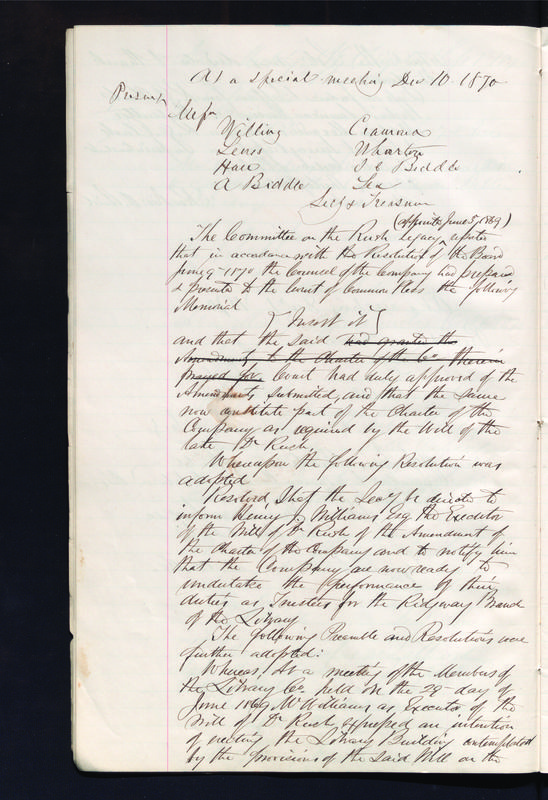 At a special meeting Dec 10. 1870
Present
Messrs
Willing Cramond
Lewis Wharton
Hare J C Biddle
A Biddle Lea
Secy & Treasurer
(appointed June 5, 1869)
The Committee on the Rush Legacy reported
that in accordance with the Resolution of the Board
June 9 1870 the Counsel of the Company had prepared
& presented to the Court of Common Pleas the following
Memorial
[Insert it]
and that the said had granted the
Amendments to the Charter of the Co. therein
prayed for Court had duly approved of the
Amendments submitted and that the same
now constitute part of the Charter of the
Company as required by the Will of the
late Dr Rush.
Whereupon the following Resolution was
adopted
Resolved, That the Secy be directed to
inform Henry J. Williams Esq the Executor
of the Will of Dr Rush of the Amendment of
the Charter of the Company and to notify him
that the Company are now ready to
undertake the performance of their
duties as Trustees for the Ridgway Branch
of the Library
The following Preamble and Resolutions were
further adopted:
Whereas, At a meeting of the Members of
the Library Co. held on the day of
June 1869 Mr Williams as Executor of the
Will of Dr Rush expressed an intention
of erecting the Library Building contemplated
by the provisions of the said Will on the